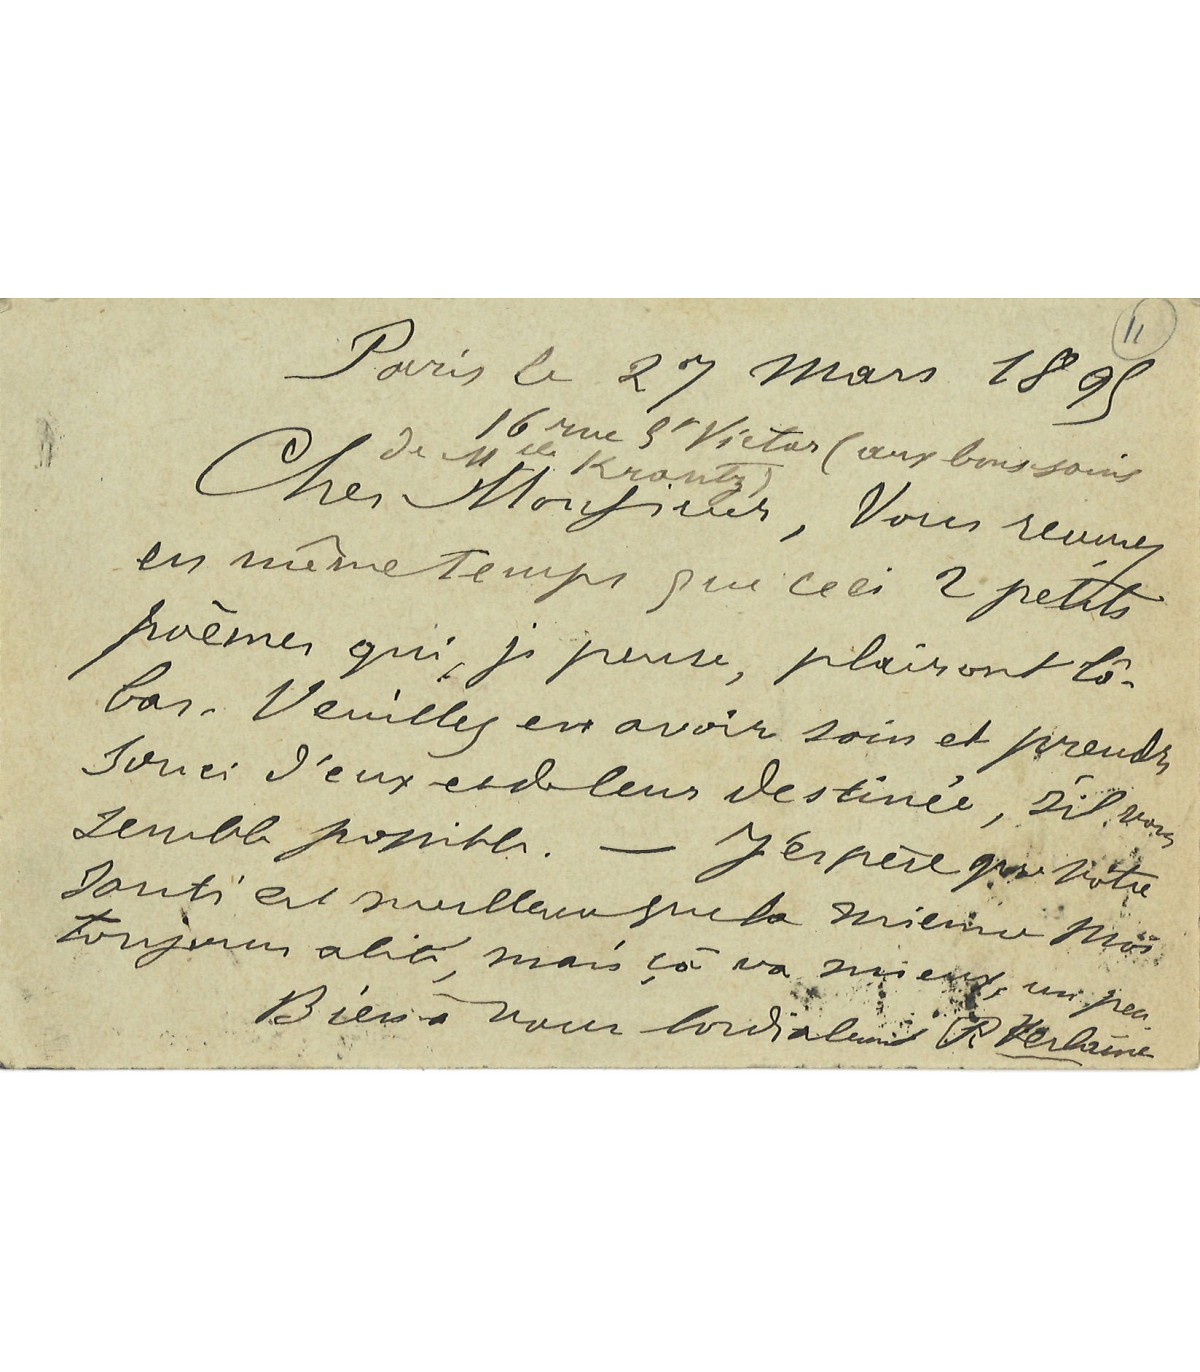 11
Paris le 27 mars 1895
16 rue St Victor (aux bons soins
de Mlle Krantz)
Cher Monsieur, Vous recevrez
en même temps que ceci 2 petits
poèmes qui, je pense, plairont là-
bas. Veuillez en avoir soin et prendre
souci d'eux et de leur destinée, s'il vous
semble possible. — J'espère que votre
santé est meilleure que la mienne Moi
toujours alité, mais çà va mieux, un peu.
Bien à vous cordialement P. Verlaine